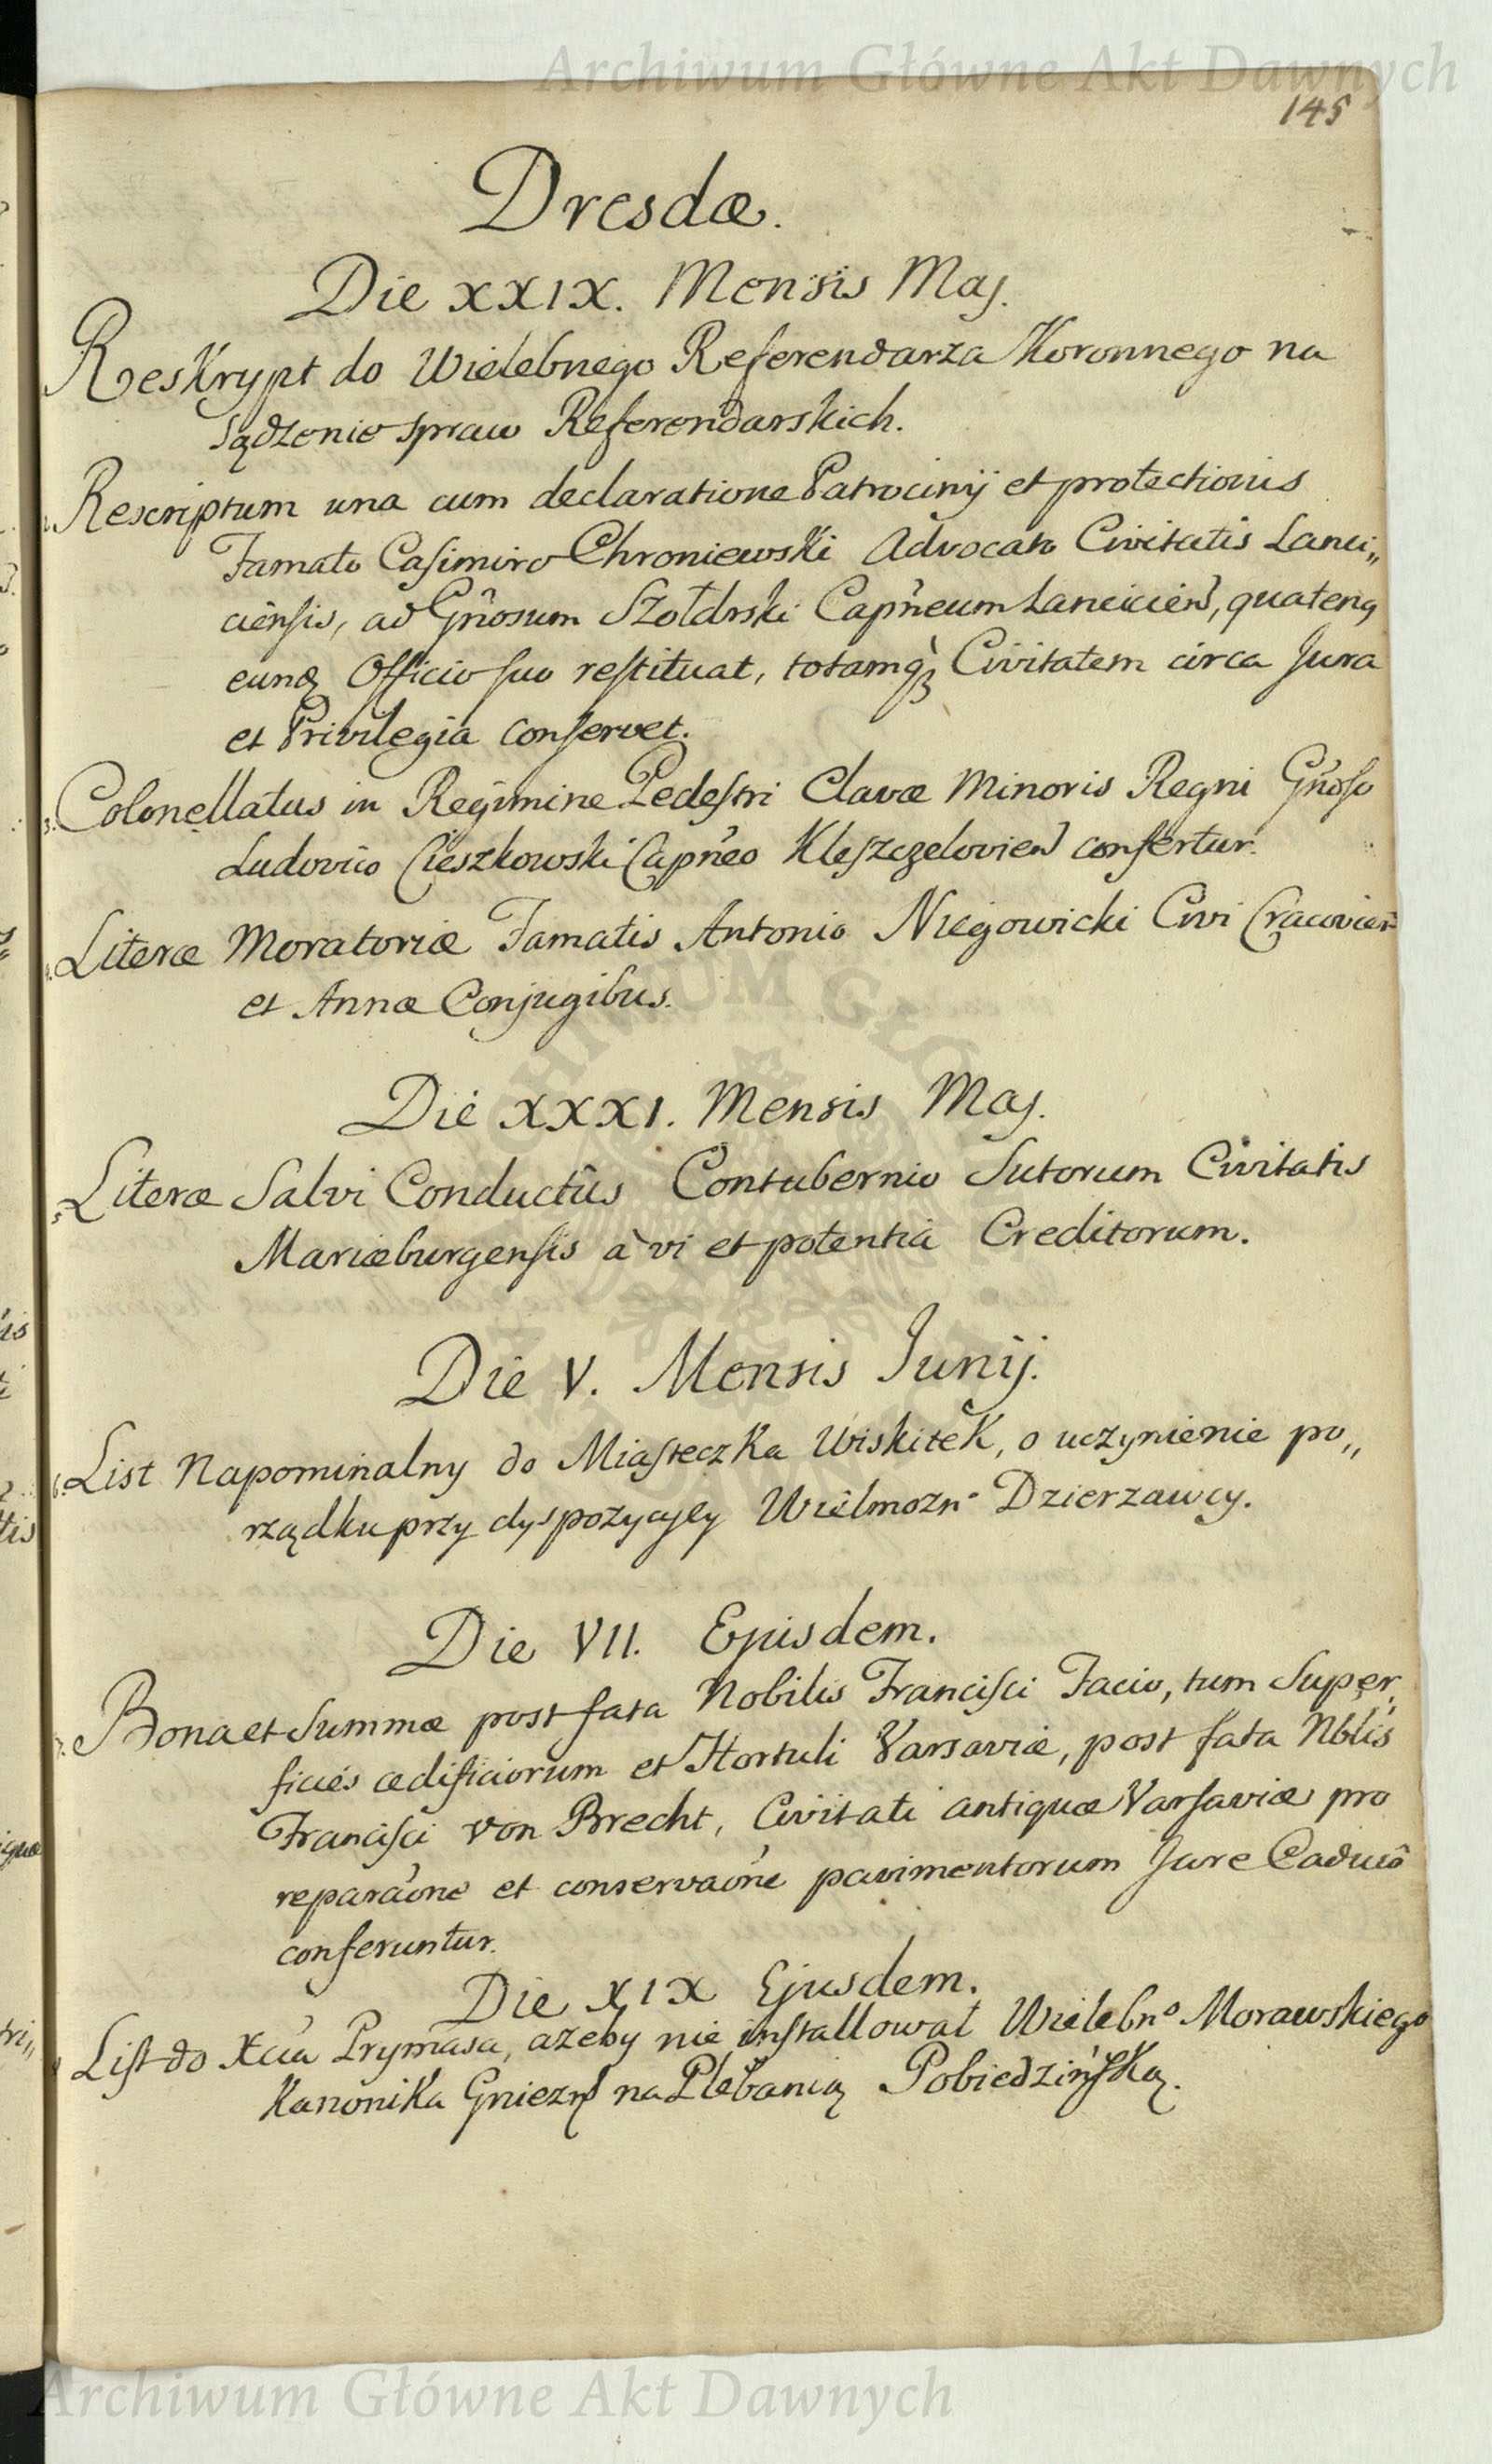 Archiwum Główne Akt Dawnych
145
Dresdæ.
Die XXIX. Mensis Maj.
Reskrypt do Wielebnego Referendarza Koronnego na
sądzenie spraw Referendarskich.
2. Rescriptum una cum declaratione Patrocinij et protectionis
Famato Casimiro Chroniewski Advocato Civitatis Lanci„
ciensis, ad Gñosum Szołdrski Capñeum Lancicień, quateng
eundẽ Officio suo restituat, totamq̀ꝫ Civitatem circa Jura
et Privilegia conservet.
3. Colonellatus in Regimine Pedestri Clavæ Minoris Regni Gñoso
Ludovico Cieszkowski Capñeo Kleszczelovień confertur.
4. Literæ Moratoriæ Famatis Antonio Niegowicki Civi Cracovień
et Annæ Conjugibus.
Die XXXI. Mensis Maj.
5. Literæ Salvi Conductûs Contubernio Sutorum Civitatis
Mariæburgensis à vi et potentia Creditorum.
Die V. Mensis Junij.
6. List Napominalny do Miasteczka Wiskitek, o uczynienie po„
rządku przy dyspozycyey Wielmozn° Dzierzawcy.
Die VII. Ejusdem.
7. Bona et Summæ post fata Nobilis Francisci Facio, tum Super„
ficies ædificiorum et Hortuli Varsaviæ, post fata Nblis
Francisci von Brecht, Civitati antiquæ Varsaviæ pro
reparãone et conservãone pavimentorum Jure Caducô
conferuntur.
Die XIX Ejusdem.
List do Xcia Prymasa, azeby nie installowal Wielebn° Morawskiego
Kanonika Gniezń na Plebanią Pobiedzińską.
Archiwum Główne Akt Dawnych